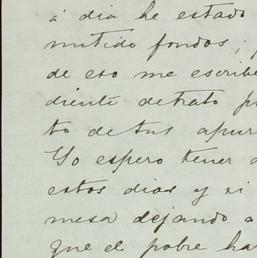 á dia he estado
mitido fondos;
de eso me escribe
diente detrato
to de tus apur
Yo espero tener
estos dias y si
mesa dejando a
que el pobre ha